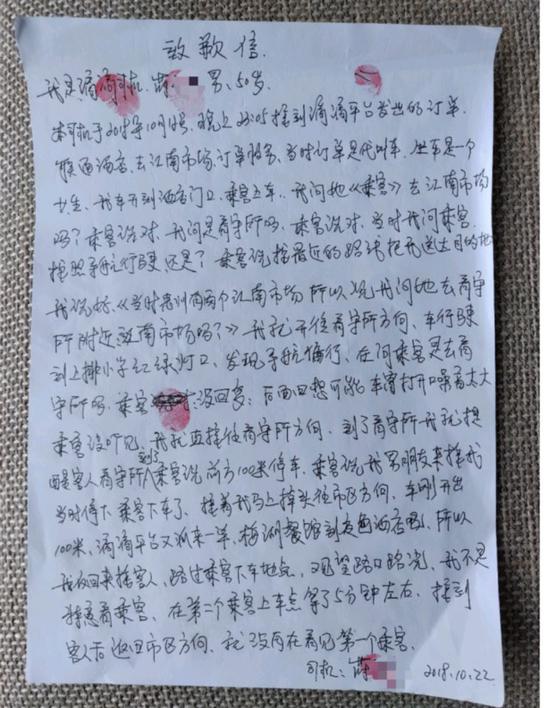 致歉信
我是滴滴司机 薛 男、50岁
本司机于2018年10月 号 晚上23:05接到滴滴平台发出的订单
酒店、去江南市场订单服务、当时订单是代叫车、坐车是一个
女生、我车开到酒店门口、乘客上车、我问她《乘客》去江南市场
吗?乘客说对、我问是看守所吗、乘客说对、当时我问乘客
按照导航行驶、还是?乘客说按最近的路线把我送去目的地
我说好、《当时 两个江南市场 所以说我问她去看守
所附近江南市场吗?》我就开往看守所方向、车行驶
到上排小学红绿灯口、发现导航偏行、在问乘客是去看
守所吗、乘客 没回答、后面回想可能车窗打开口噪音太大
乘客没听见、我就直接往看守所方向、到了看守所我就提
醒客人看守所到了乘客说前方100米停车、乘客说我男朋友来接我
当时停下乘客下车了、接着我马上掉头往市区方向、车刚开出
100米、滴滴平台又派来一单、 餐馆到 酒店 、所以
我返回来接客人、路过乘客下车地点、观望路口路况、我不是
故意看乘客、在第二个乘客上车点等了5分钟左右、接到
客人后返回市区方向、就没再在看见第一个乘客、
司机:薛 2018.10.22